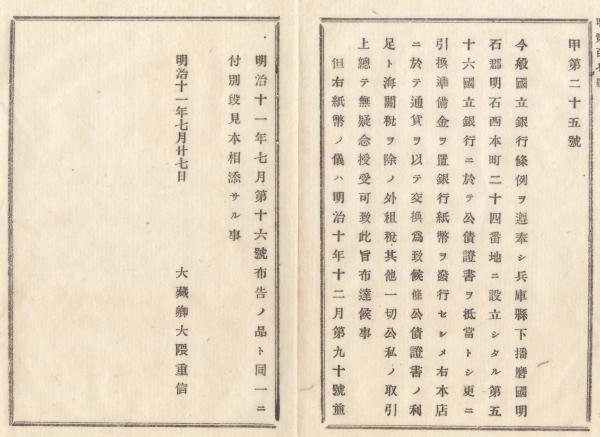 甲第二十五號
今般國立銀行條例ヲ遵奉シ兵庫縣下播磨國明
石郡明石西本町二十四番地ニ設立シタル第五
十六國立銀行ニ於テ公債證書ヲ抵當トシ更ニ
引換準備金ヲ置銀行紙幣ヲ發行セシメ右本店
ニ於テ通貨ヲ以テ交換爲致候條公債證書ノ利
足ト海關稅ヲ除ノ外租稅其他一切公私ノ取引
上總テ無疑念授受可致此旨布達候事
但右紙幣ノ儀ハ明治十年十二月第九十號並
明治十一年七月第十六號布告ノ品ト同一ニ
付別段見本相添サル事
明治十一年七月廿七日
大藏卿大隈重信